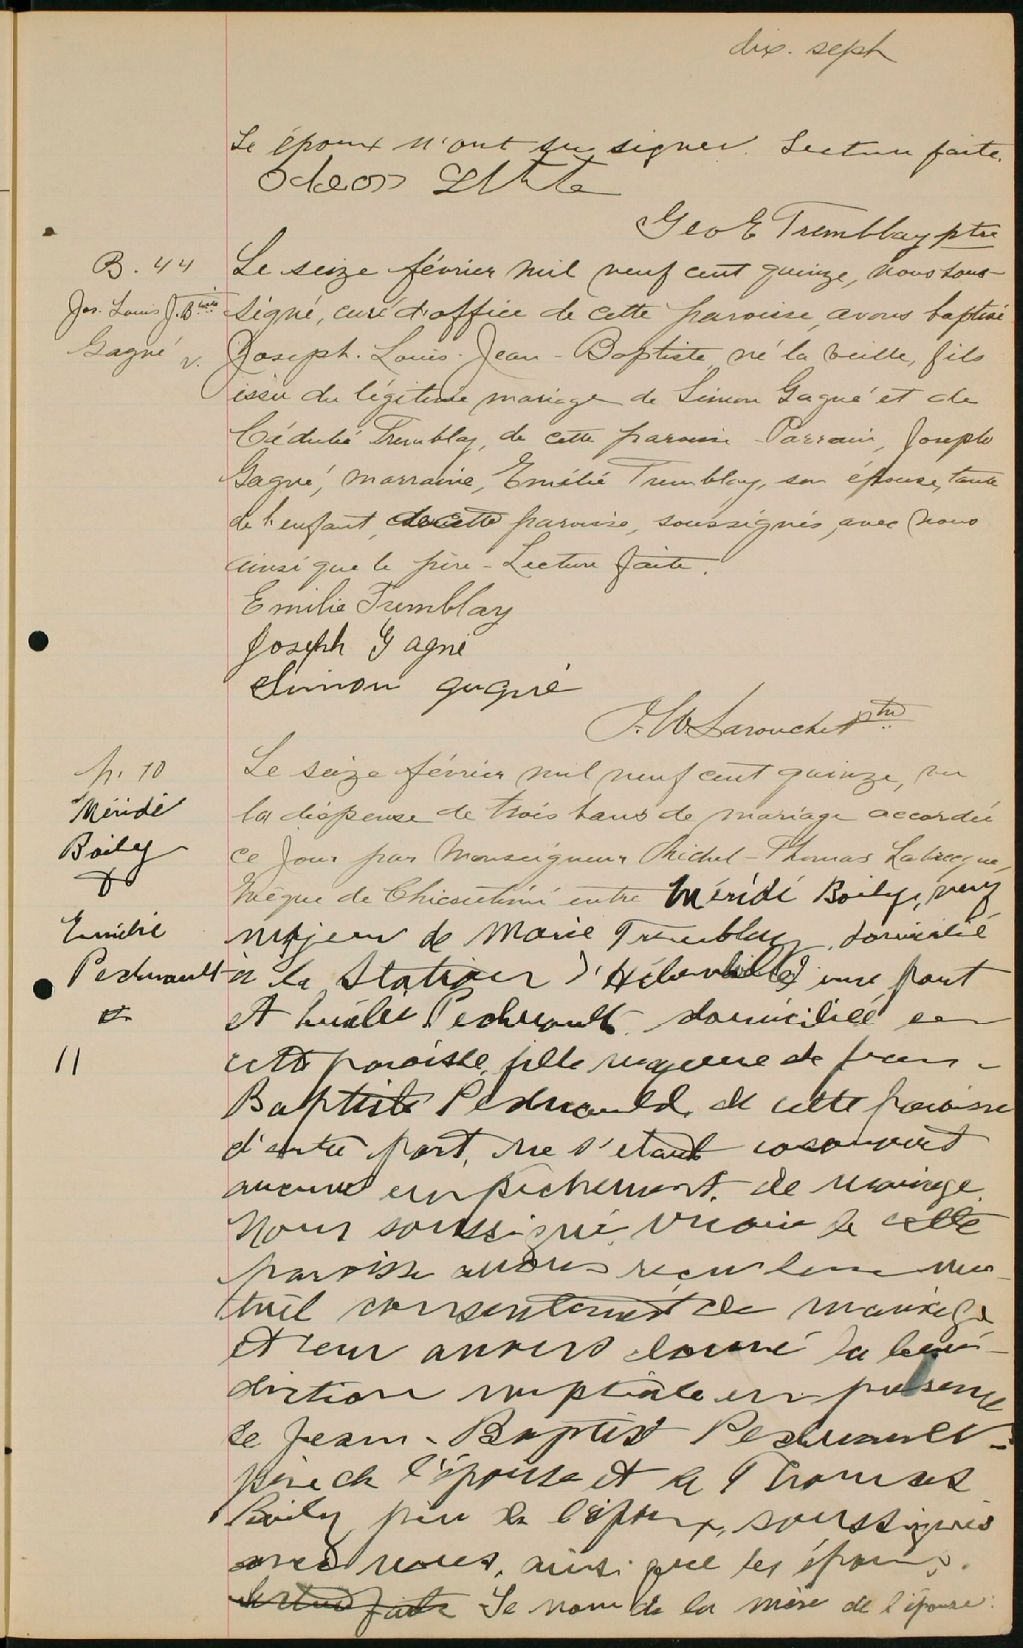 dix. sept
Le époux n'ont su signer. Lecture faite.
Geo E Tremblay ptre
B. 44
Jos. Louis J. Bte
Gagné
Le seize février mil neuf cent quinze, nous sous-
signé, curé d'office de cette paroisse, avons baptisé
Joseph. Louis. Jean-Baptiste, né la veille, fils
issu du légitime mariage de Simon Gagné et de
Cédulie Tremblay, de cette paroisse. Parrain, Joseph
Gagné, marraine, Emilie Tremblay, son épouse, tante
de l'enfant, de cette paroisse, soussignés, avec nous
ainsi que le père - Lecture faite.
Emilie Tremblay
Joseph Gagné
Simon gagné
J. W. Larouche ptre
10
Méridé
Boily
&
Emilie
Pednault
11
Le seize février mil neuf cent quinze, vu
la dispense de trois bans de mariage accordée
ce jour par Monseigneur Michel-Thomas Labrecque,
évêque de Chicoutimi entre Méridé Boily, veuf
majeur de Marie Tremblay, domicilié
à la Station d'Hébertville d'une part
et Emilie Pednault domiciliée en
cette paroisse, fille majeure de Jean-
Baptiste Pednauld, de cette paroisse
d'autre part, ne s'étant découvert
aucun empêchement de mariage
Nous soussigné, vicaire de cette
paroisse avons reçu leur mu-
tuel consentement de mariage
et leur avons donné la béné-
diction nuptiale en présence
de Jean-Baptiste Pednault
père de l'épouse et de Thomas
Boily, père de l'époux, soussignés
avec nous, ainsi que les époux.
Lecture faite Le nom de la mère de l'épouse: